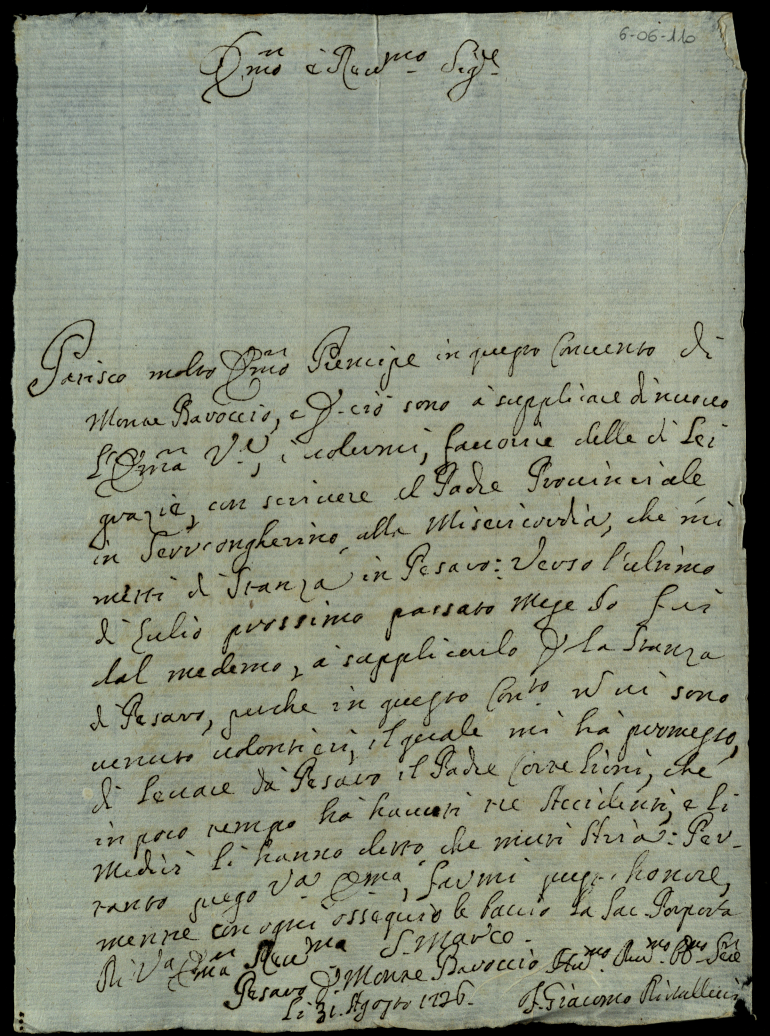 6-06-116
Em̃o è Reu.mo Sig.re
Patisco molto Em̃o Prencipe in questo Conuento di
Monte Baroccio, e P ciò sono à supplicare di nuouo
L'Em̃a V.a, à uolermi, fauorire delle di Lei
grazie, con scriuere al Padre Prouinciale
in Serrongherino, alla Misericordia, che mi
metti di Stanza in Pesaro: Verso l'ultimo
di Lulio prossimo passato Mese Io fui
dal medemo, à supplicarlo P la Stanza
di Pesaro, perche in questo Con.to ñ ui sono
uenuto uolontieri, il quale mi hà promesso,
di Leuare da Pesaro il Padre, che
in poco tempo hà hauuti tre Accidenti, e li
Medici li hanno detto che muti Aria: Per-
tanto prego V.a Em̃a, farmi quest' honore,
mentre con ogni ossequio le baccio la Sac. Porpora
Di V.a Em̃a Reu.ma S. Marco.
Pesaro P Monte Baroccio Hu.mo Deu.mo Ob.mo Ser.e
Li 31. Agosto 1726. F. Giacomo